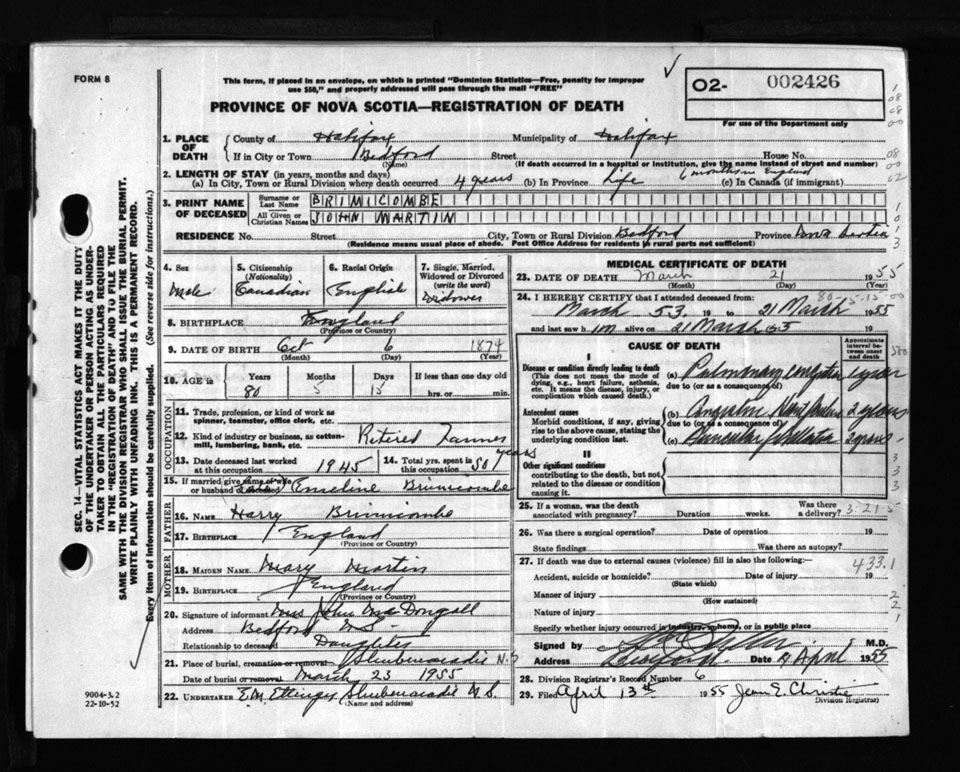 FORM 8
This form, if placed in an envelope, on which is printed "Dominion Statistics—Free, penalty for improper
use $50," and properly addressed will pass through the mail "FREE"
PROVINCE OF NOVA SCOTIA—REGISTRATION OF DEATH
O2- 002426
For use of the Department only
SEC. 14—VITAL STATISTICS ACT MAKES IT THE DUTY
OF THE UNDERTAKER OR PERSON ACTING AS UNDER-
TAKER TO OBTAIN ALL THE PARTICULARS REQUIRED
IN THE "REGISTRATION OF DEATH" AND TO FILE THE
SAME WITH THE DIVISION REGISTRAR WHO SHALL ISSUE THE BURIAL PERMIT.
WRITE PLAINLY WITH UNFADING INK. THIS IS A PERMANENT RECORD.
Every item of Information should be carefully supplied. (See reverse side for instructions.)
1. PLACE OF DEATH
County of Halifax Municipality of Halifax
If in City or Town Bedford Street House No.
(Name) (If death occurred in a hospital or institution, give the name instead of street and number)
2. LENGTH OF STAY (in years, months and days) 6 months in England
(a) In City, Town or Rural Division where death occurred 4 years (b) In Province life (c) In Canada (if immigrant)
3. PRINT NAME OF DECEASED
Surname or Last Name BRIMICOMBE
All Given or Christian Names JOHN MARTIN
RESIDENCE No. Street City, Town or Rural Division Bedford Province Nova Scotia
(Residence means usual place of abode. Post Office Address for residents in rural parts not sufficient)
4. Sex
Male
5. Citizenship (Nationality)
Canadian
6. Racial Origin
English
7. Single, Married, Widowed or Divorced (write the word)
Widower
8. BIRTHPLACE England
(Province or Country)
9. DATE OF BIRTH Oct 6 1874
(Month) (Day) (Year)
10. AGE in Years Months Days If less than one day old
80 5 15 hrs. or min.
OCCUPATION
11. Trade, profession, or kind of work as
spinner, teamster, office clerk, etc.
12. Kind of industry or business, as cotton-
mill, lumbering, bank, etc. Retired Farmer
13. Date deceased last worked
at this occupation 1945
14. Total yrs. spent in
this occupation 50 years
15. If married give name of wife
or husband of deceased Emeline Brimicombe
FATHER
16. NAME Harry Brimicombe
17. BIRTHPLACE England
(Province or Country)
MOTHER
18. MAIDEN NAME Mary Martin
19. BIRTHPLACE England
(Province or Country)
20. Signature of informant Mrs John MacDougall
Address Bedford N.S.
Relationship to deceased Daughter
21. Place of burial, cremation or removal Shubenacadie N.S
Date of burial or removal March 23 1955
22. UNDERTAKER E.M. Ettinger Shubenacadie N.S.
(Name and address)
9004-3.2
22-10-52
MEDICAL CERTIFICATE OF DEATH
23. DATE OF DEATH March 21 1955
(Month) (Day) (Year)
24. I HEREBY CERTIFY that I attended deceased from: 80-5-15-00
March 53 19 to 21 March 1955
and last saw h im alive on 21 March 55 19
CAUSE OF DEATH
Approximate interval between onset and death
I
Disease or condition directly leading to death
(This does not mean the mode of
dying, e.g., heart failure, asthenia,
etc. It means the disease, injury, or
complication which caused death.)
(a) Pulmonary 1 year
due to (or as a consequence of)
Antecedent causes
Morbid conditions, if any, giving
rise to the above cause, stating the
underlying condition last.
(b) Heart Failure 2 years
due to (or as a consequence of)
(c) Auricular 2 years
II
Other significant conditions
contributing to the death, but not
related to the disease or condition
causing it.
25. If a woman, was the death
associated with pregnancy? Duration weeks. Was there a delivery?
26. Was there a surgical operation? Date of operation 19
State findings Was there an autopsy?
27. If death was due to external causes (violence) fill in also the following:— 433.1
Accident, suicide or homicide? Date of injury 19
(State which)
Manner of injury
(How sustained)
Nature of injury
Specify whether injury occurred in industry, in home, or in public place
Signed by M.D.
Address Bedford Date 4 April 1955
28. Division Registrar's Record Number 6
29. Filed April 13th 1955 Jean E. Christie
(Division Registrar)